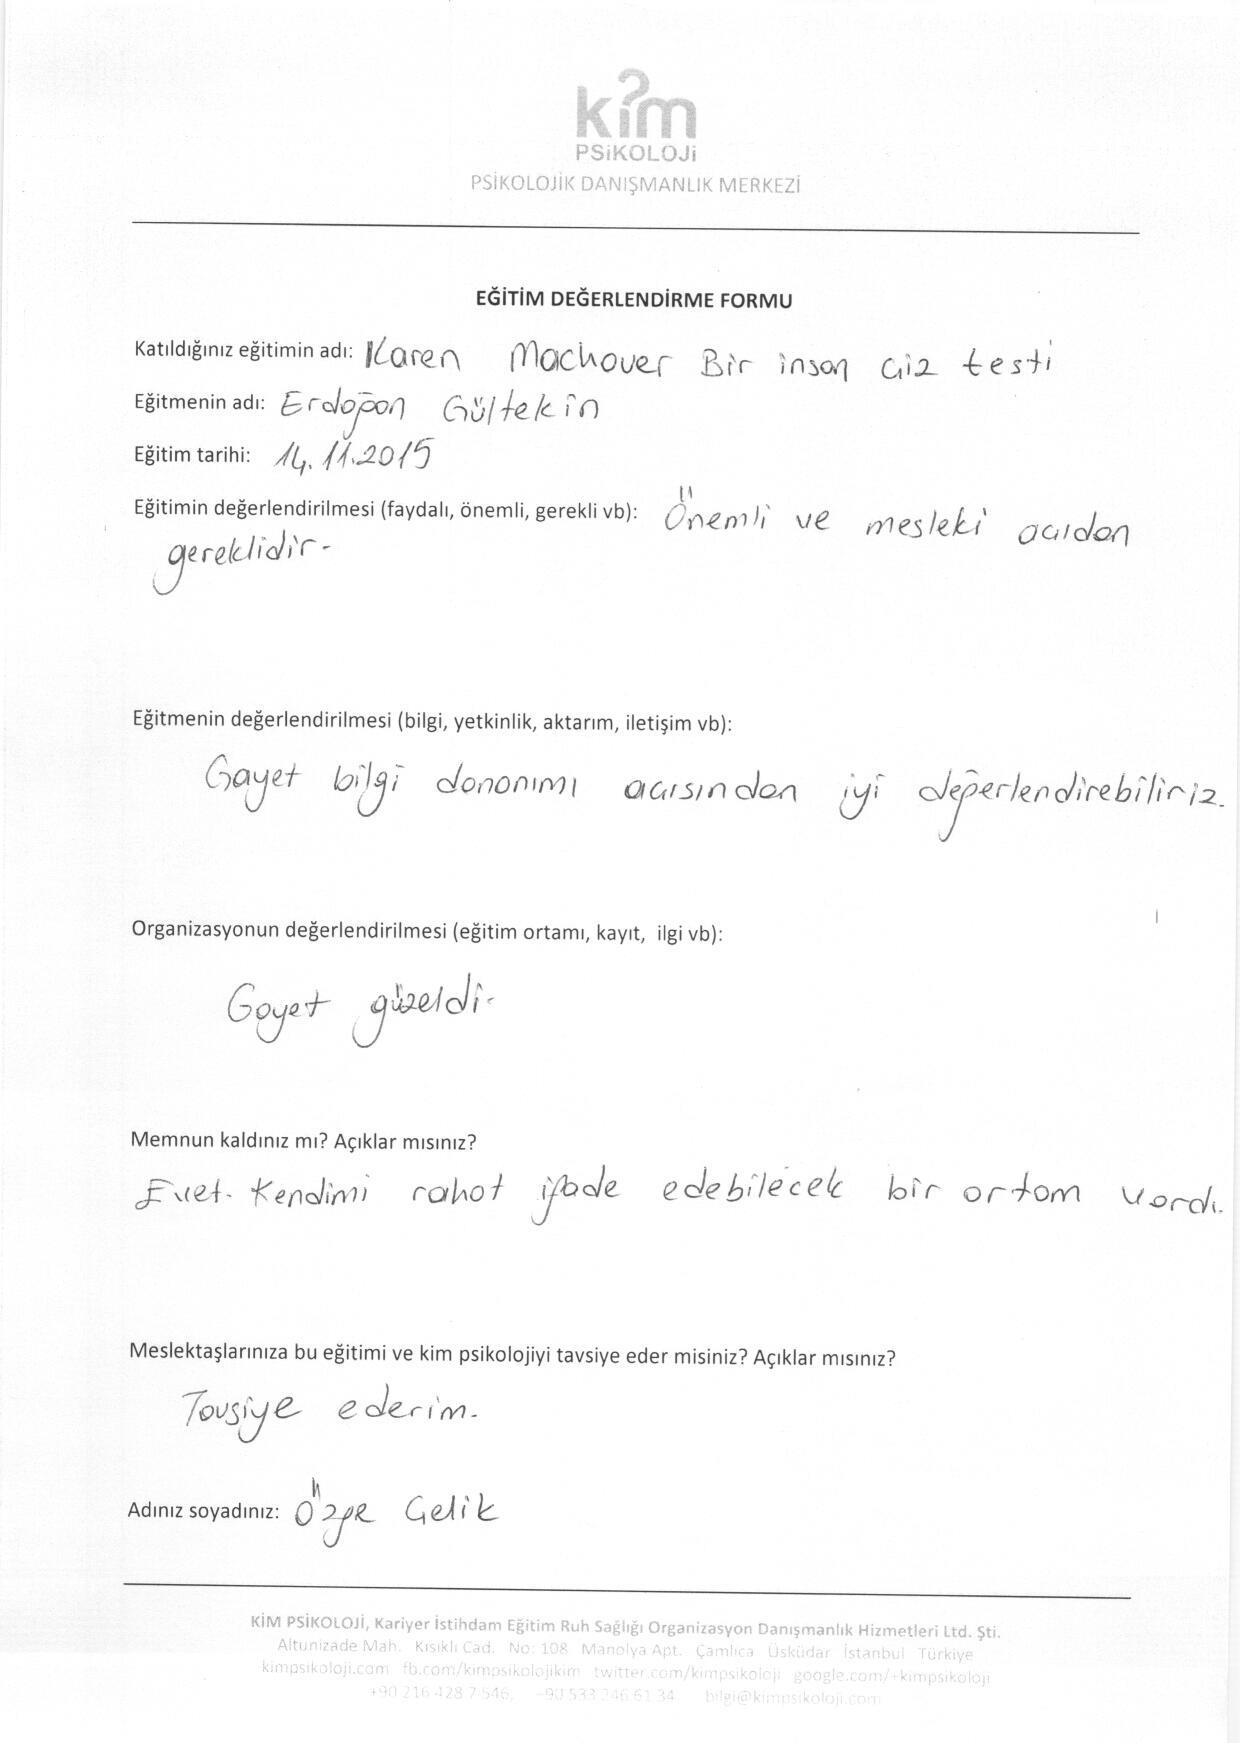 kim
PSiKOLOJi
PSİKOLOJİK DANIŞMANLIK MERKEZİ
EĞİTİM DEĞERLENDİRME FORMU
Katıldığınız eğitimin adı: Karen Machover Bir insan Çiz testi
Eğitmenin adı: Erdoğan Gültekin
Eğitim tarihi: 14.11.2015
Eğitimin değerlendirilmesi (faydalı, önemli, gerekli vb): Önemli ve mesleki açıdan
gereklidir.
Eğitmenin değerlendirilmesi (bilgi, yetkinlik, aktarım, iletişim vb):
Gayet bilgi donanımı açısından iyi değerlendirebiliriz.
Organizasyonun değerlendirilmesi (eğitim ortamı, kayıt, ilgi vb):
Gayet güzeldi.
Memnun kaldınız mı? Açıklar mısınız?
Evet. Kendimi rahat ifade edebilecek bir ortam vardı.
Meslektaşlarınıza bu eğitimi ve kim psikolojiyi tavsiye eder misiniz? Açıklar mısınız?
Tavsiye ederim.
Adınız soyadınız: Özge Çelik
KİM PSİKOLOJİ, Kariyer İstihdam Eğitim Ruh Sağlığı Organizasyon Danışmanlık Hizmetleri Ltd. Şti.
Altunizade Mah. Kısıklı Cad. No: 108 Manolya Apt. Çamlıca Üsküdar İstanbul Türkiye
kimpsikoloji.com fb.com/kimpsikolojikim twitter.com/kimpsikoloji google.com/+kimpsikoloji
+90 216 428 7 546, +90 533 246 61 34 bilgi@kimpsikoloji.com